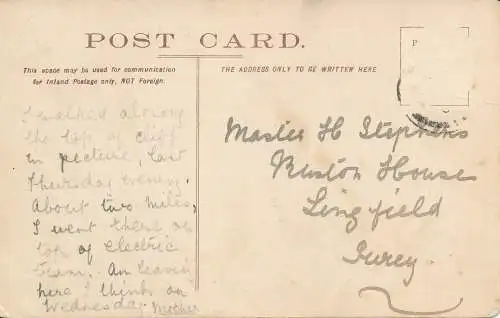 POST CARD.
This space may be used for communication
for Inland Postage only, NOT Foreign.
THE ADDRESS ONLY TO BE WRITTEN HERE
P
I walked along
the top of cliff
in picture, last
Thursday evening.
About two miles,
I went there on
top of electric
tram. Am leaving
here I think on
Wednesday Mother
Master H Stephens
Ruston House
Lingfield
Surey